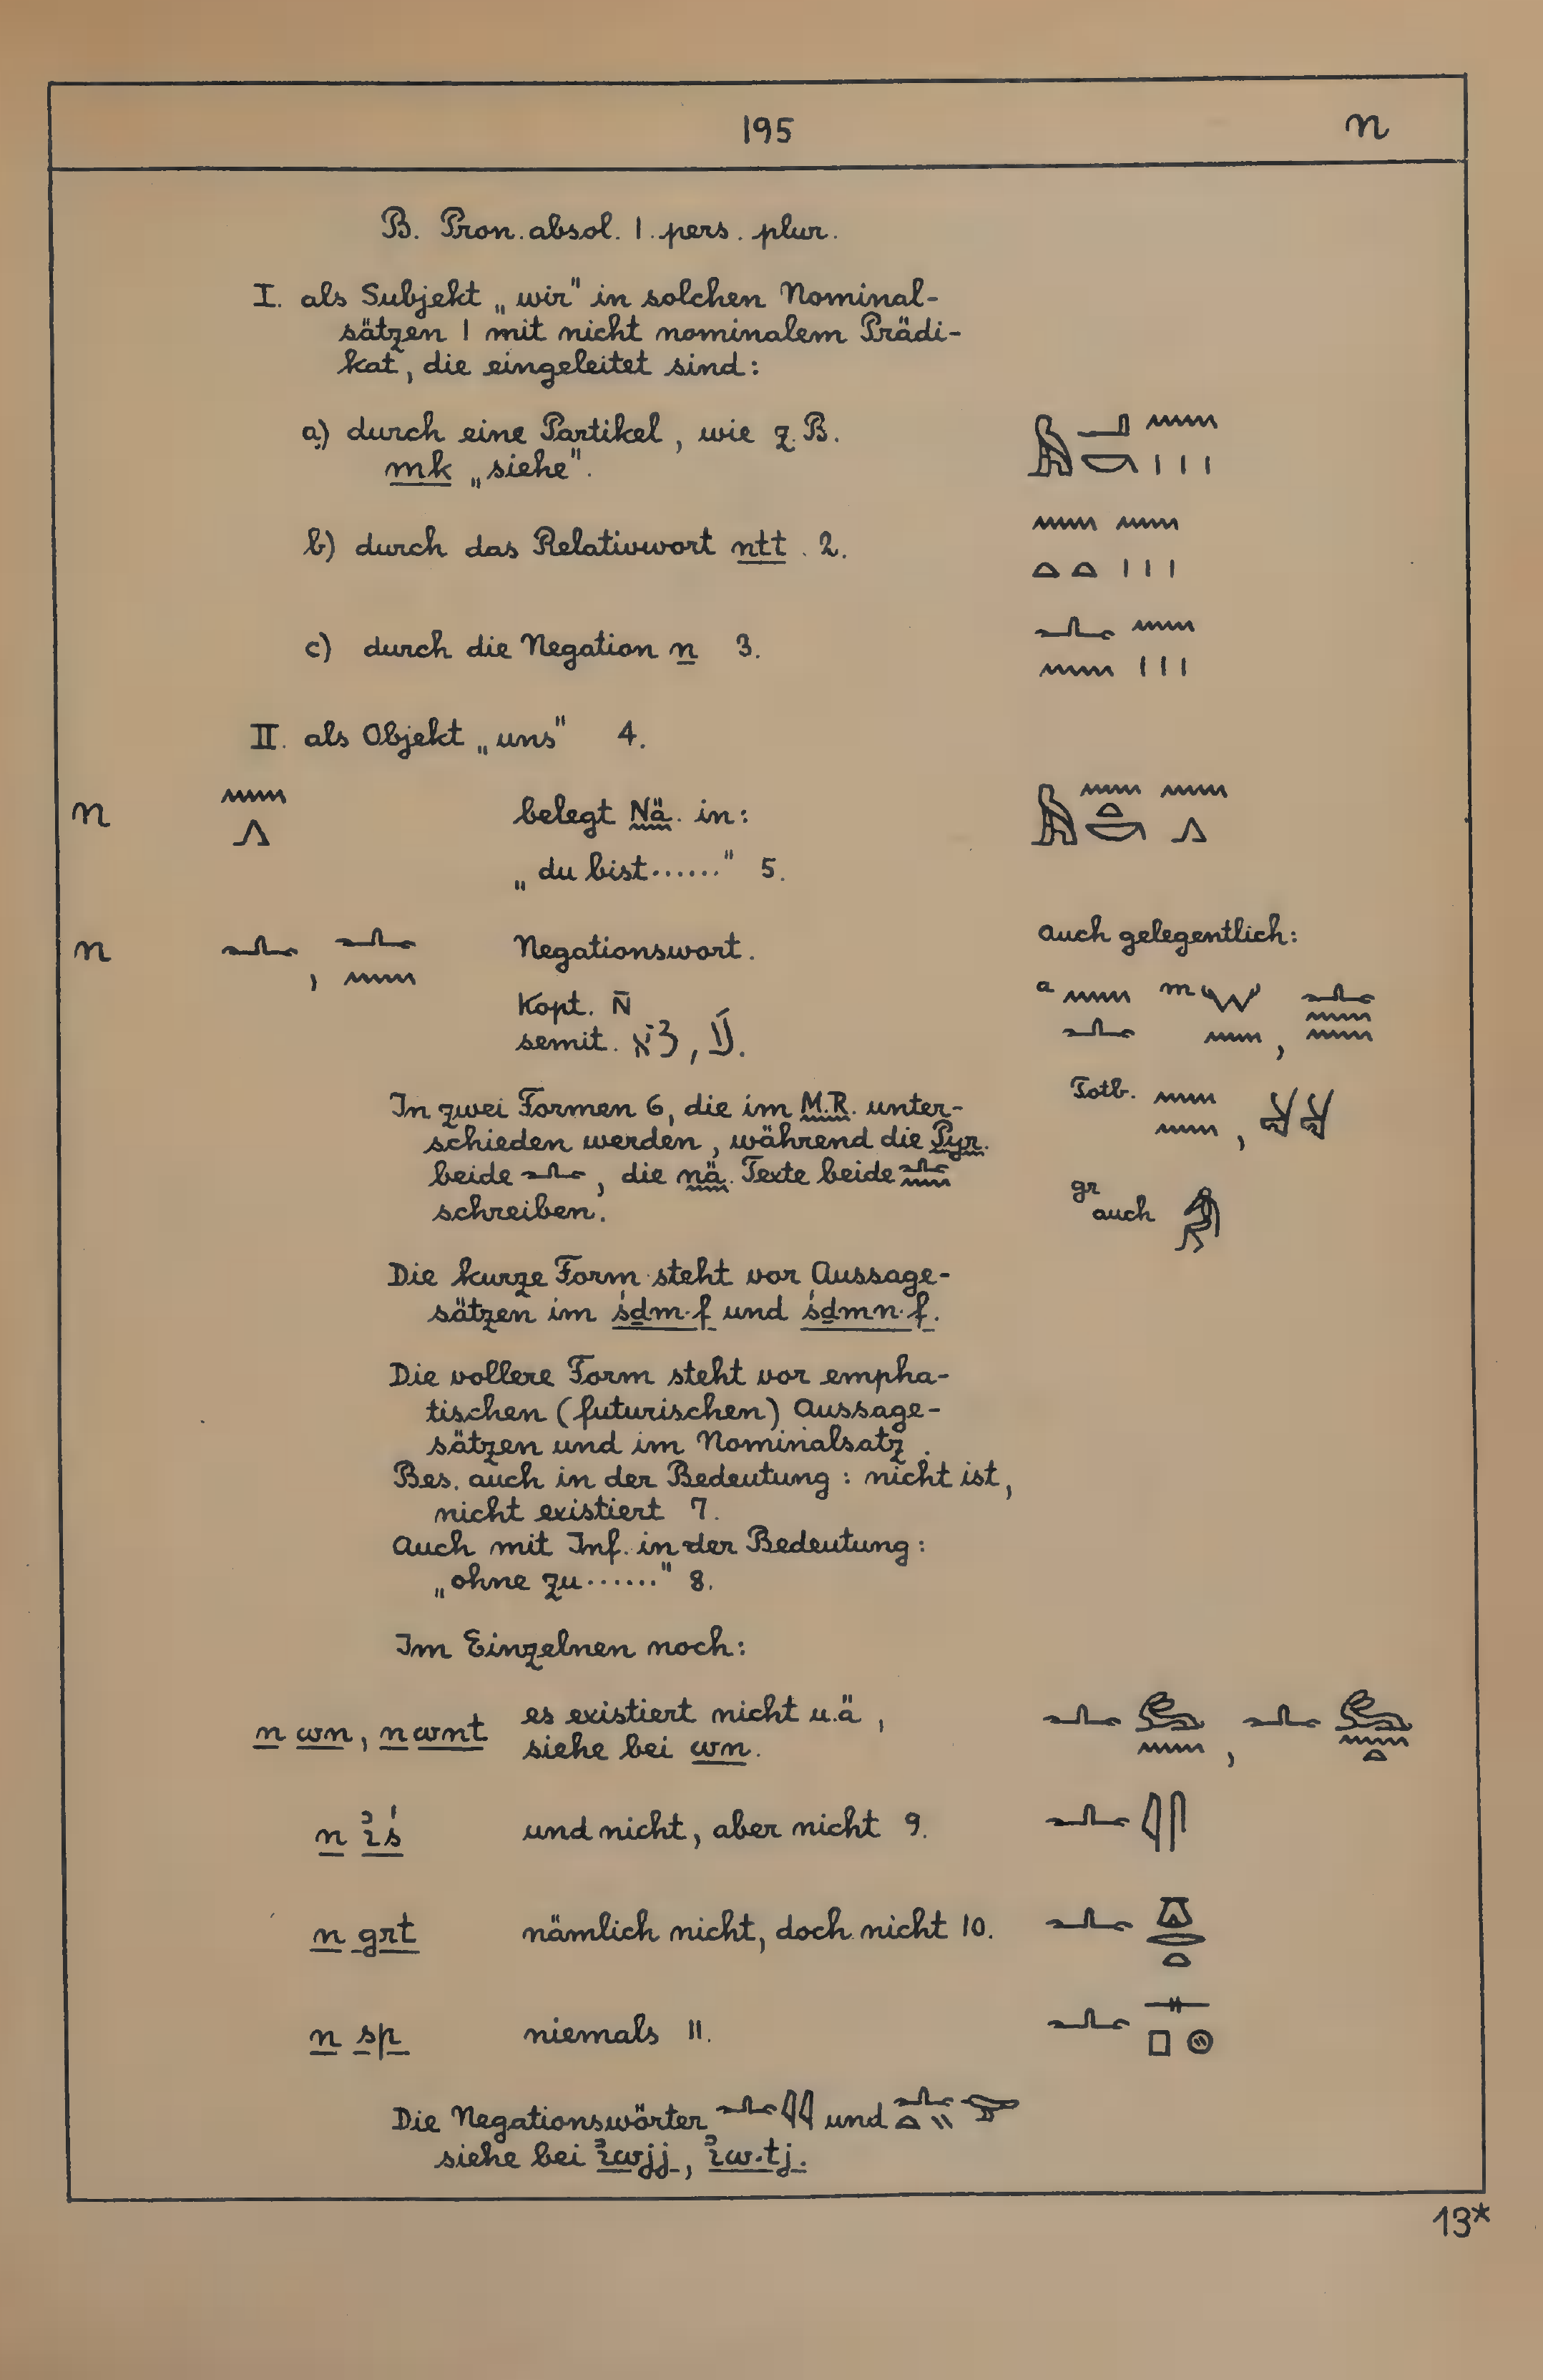 195 n
B. Pron. absol. 1. pers. plur.
I. als Subjekt „wir" in solchen Nominal-
sätzen 1 mit nicht nominalem Prädi-
kat, die eingeleitet sind:
a) durch eine Partikel, wie z.B. 𓅓𓂝𓎡𓈖𓏥
mk „siehe".
b) durch das Relativwort ntt. 2. 𓈖𓏏𓏏𓈖𓏥
c) durch die Negation n 3. 𓂜𓈖𓈖𓏥
II. als Objekt „uns" 4.
n 𓈖𓂻 belegt Nä. in:
„du bist ......" 5.
n 𓂜, 𓂜𓈖 Negationswort. auch gelegentlich:
Kopt. N̄ a 𓈖𓂜 m 𓈖, 𓂜𓈖𓈖
semit. אֵין, لَا.
In zwei Formen 6, die im M.R. unter- Totb. 𓈖𓈖,
schieden werden, während die Pyr.
beide 𓂜, die nä. Texte beide 𓂜𓈖
schreiben. gr auch
Die kurze Form steht vor Aussage-
sätzen im śḏm·f und śḏmn·f.
Die vollere Form steht vor empha-
tischen (futurischen) Aussage-
sätzen und im Nominalsatz.
Bes. auch in der Bedeutung: nicht ist,
nicht existiert 7.
Auch mit Inf. in der Bedeutung:
„ohne zu ......" 8.
Im Einzelnen noch:
n wn, n wnt es existiert nicht u.ä, 𓂜𓃹𓈖, 𓂜𓃹𓈖𓏏
siehe bei wn.
n ı͗ś und nicht, aber nicht 9. 𓂜𓇋𓋴
n grt nämlich nicht, doch nicht 10. 𓂜𓎼𓂋𓏏
n sp niemals 11. 𓂜𓊃𓊪𓊗
Die Negationswörter 𓂜𓇋𓇋 und 𓂜𓏏𓏭𓅪
siehe bei ı͗wjj, ı͗w·tj.
13*